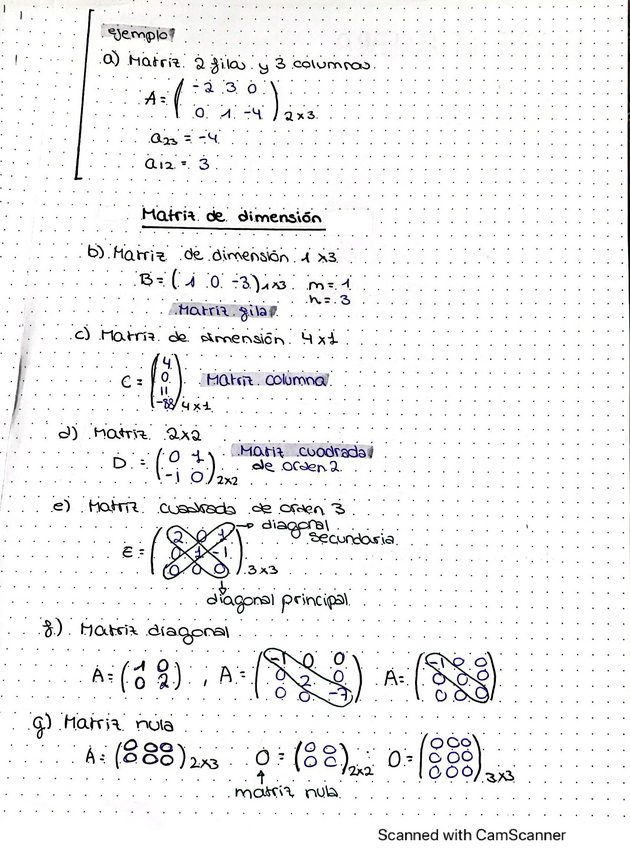 ejemplo
a) Matriz 2 fila y 3 columnas
A = ( -2 3 0
0 1 -4 ) 2x3
a23 = -4
a12 = 3
Matriz de dimensión
b) Matriz de dimensión 1x3
B = ( 1 0 -3 ) 1x3 m = 1
n = 3
Matriz fila
c) Matriz de dimensión 4x1
C = ( 4
0
11
-88 ) 4x1
Matriz columna
d) Matriz 2x2
D = ( 0 1
-1 0 ) 2x2
Matriz cuadrada
de orden 2
e) Matriz cuadrada de orden 3
E = ( 2 0 1
0 1 -1
0 0 0 ) 3x3
diagonal
secundaria
diagonal principal
f) Matriz diagonal
A = ( 1 0
0 2 ) , A = ( -1 0 0
0 2 0
0 0 -7 ) A = ( -1 0 0
0 0 0
0 0 0 )
g) Matriz nula
A = ( 0 0 0
0 0 0 ) 2x3 O = ( 0 0
0 0 ) 2x2 O = ( 0 0 0
0 0 0
0 0 0 ) 3x3
matriz nula
Scanned with CamScanner